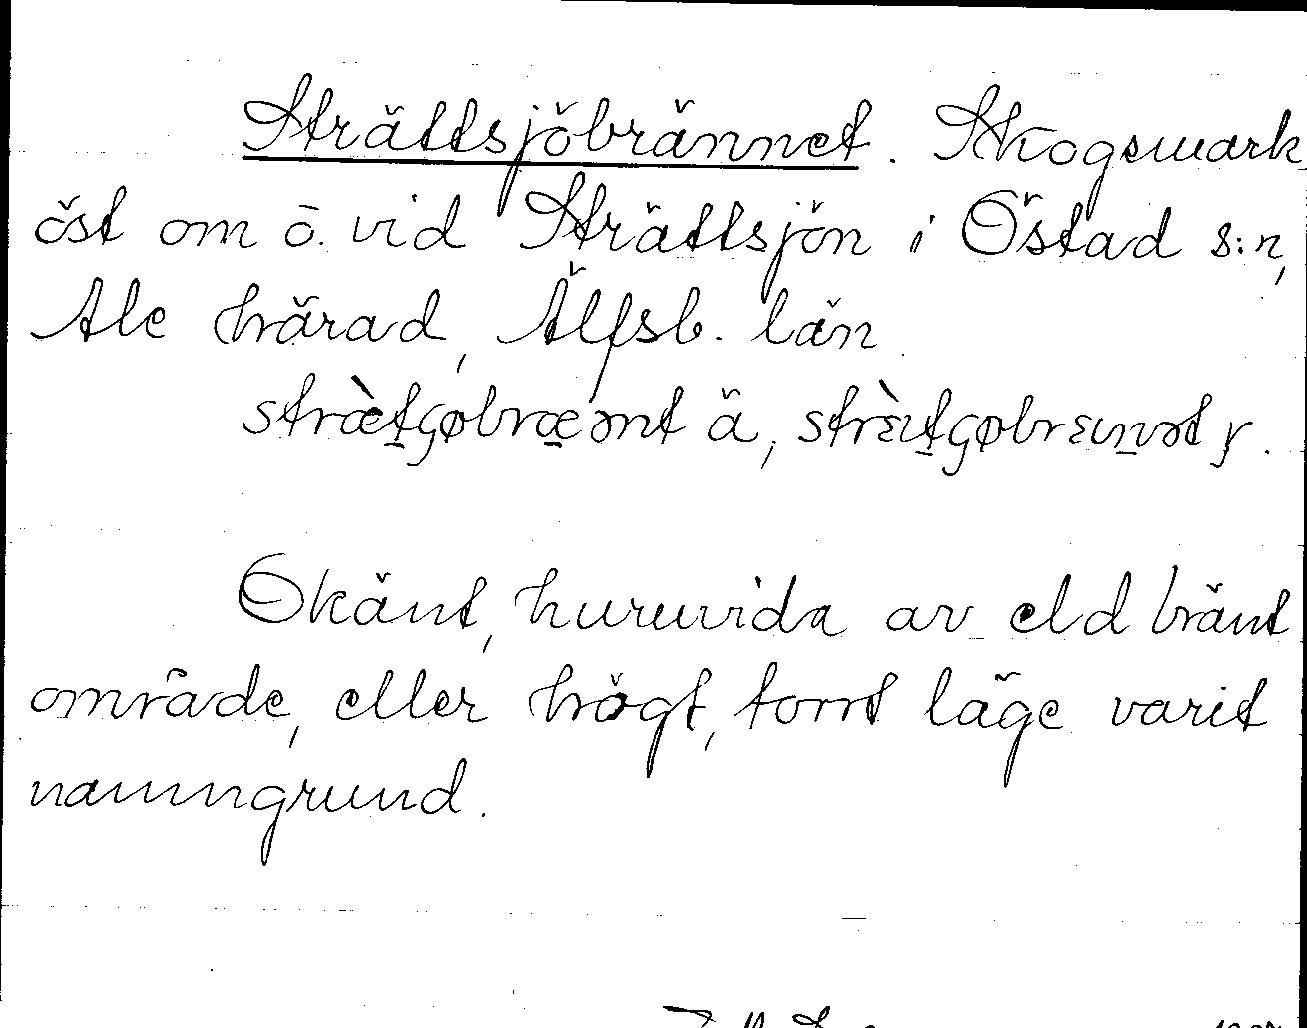 Strättsjöbrännet. Skogsmark
öst om o. vid Strättsjön i Östad s:n,
Ale härad, Älfsb. län.
stræ̀tʂøbræənt ä, strɛ̀ıtʂøbrɛınət y.
Okänt, huruvida av eld bränt
område, eller högt, torrt läge varit
namngrund.